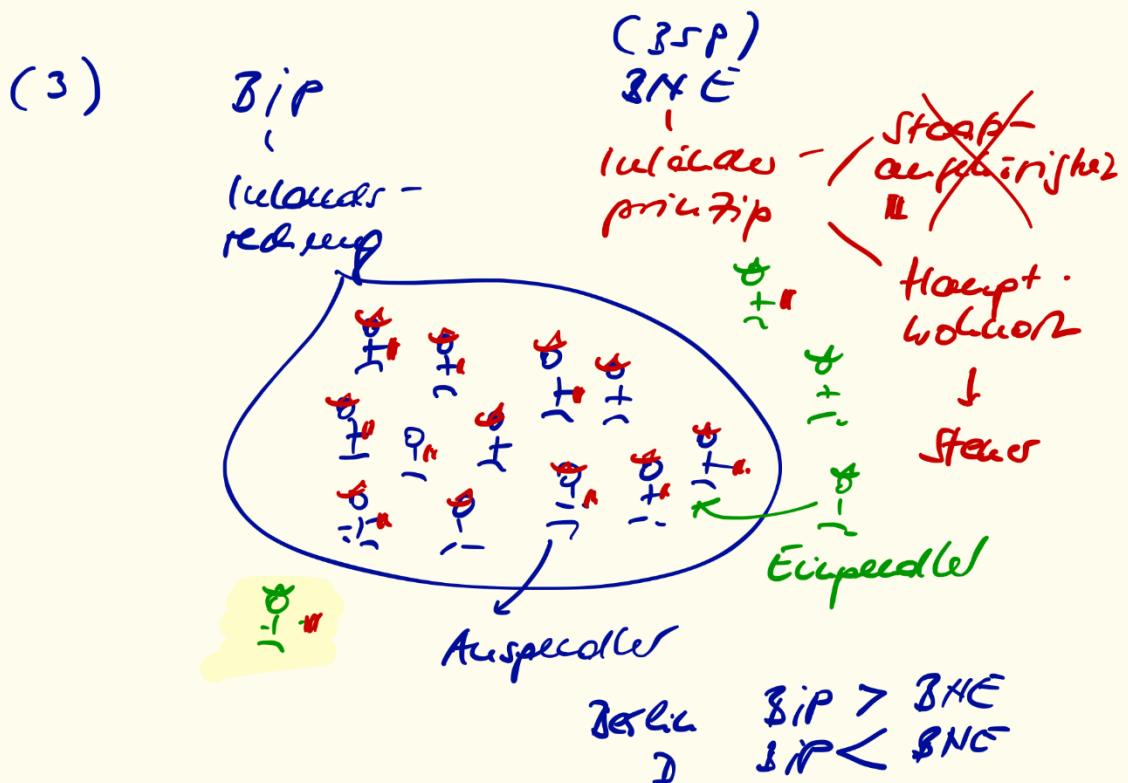 (3)
BiP
Inlands-
rechnung
(BSP)
BNE
Inländer
prinzip
Staats-
angehörigkeit
Haupt-
wohnort
Steuer
Einpendler
Auspendler
Berlin BiP > BNE
D BiP < BNE